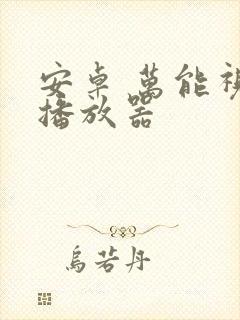 安卓 萬能視
播放器
烏若丹